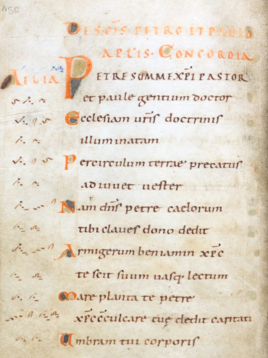 DE SCIS PETRO ET PAULO
APLIS. CONCORDIA
PETRE SUMME XPI PASTOR
et paule gentium doctor
Ecclesiam vris doctrinis
illuminatam
Per circulum terrae precatus
adiuvet vester
Nam dns petre caelorum
tibi claves dono dedit
Armigerum beniamin xpc
te scit suum vasq; lectum
Mare planta te petre
xpc conculcare tue dedit
Umbram tui corporis